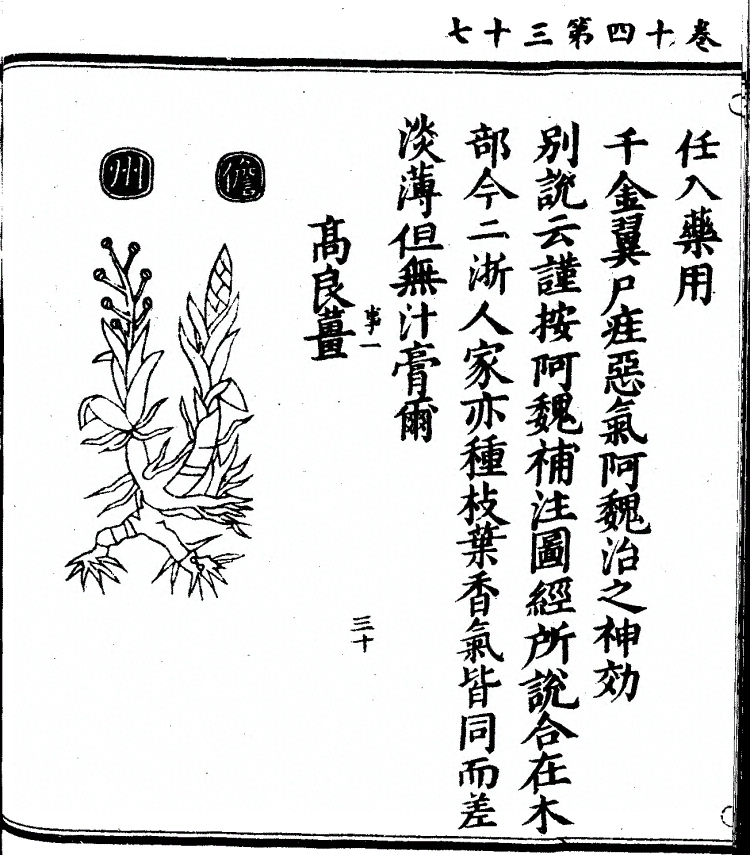 卷十四第三十七
任入藥用
千金翼尸疰惡氣阿魏治之神効
別說云謹按阿魏補注圖經所說合在木
部今二浙人家亦種枝葉香氣皆同而差
淡薄但無汁膏爾
事一
高良薑
三十
儋州